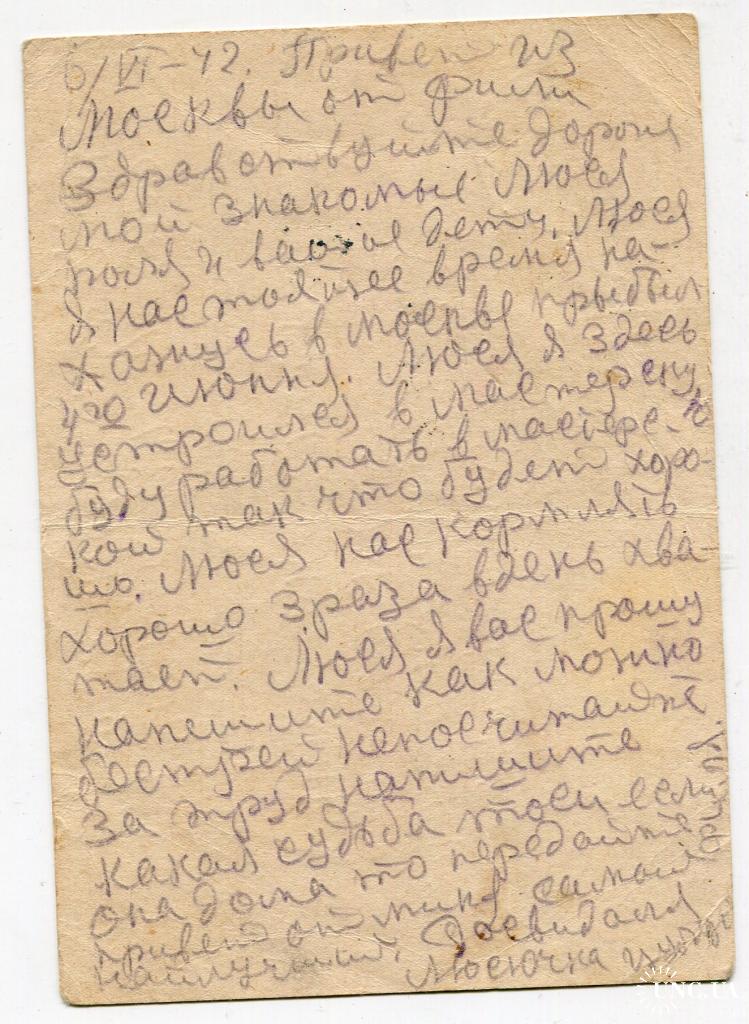 6/VI-42. Привет из
Москвы от Фили
Здравствуйте дороги
мои знакомые Люся
поля и вас ое дети. Люся
я настоящее время на-
хажусь в москве прыбыл
4го июння. Люся я здесь
устроился в мастерскую,
буду работать в мастерс-
кой так что будет хоро-
шо. Люся нас кормлять
хорошо 3 раза вдень хва-
тает. Люся я вас прошу
напешите как можно
бестрей непосчитайте
за труд напишите
какая судьба тоси если
она дома то передайте
привет от миня самый
найлучший. Досвидания
Люсючка
UNC.UA